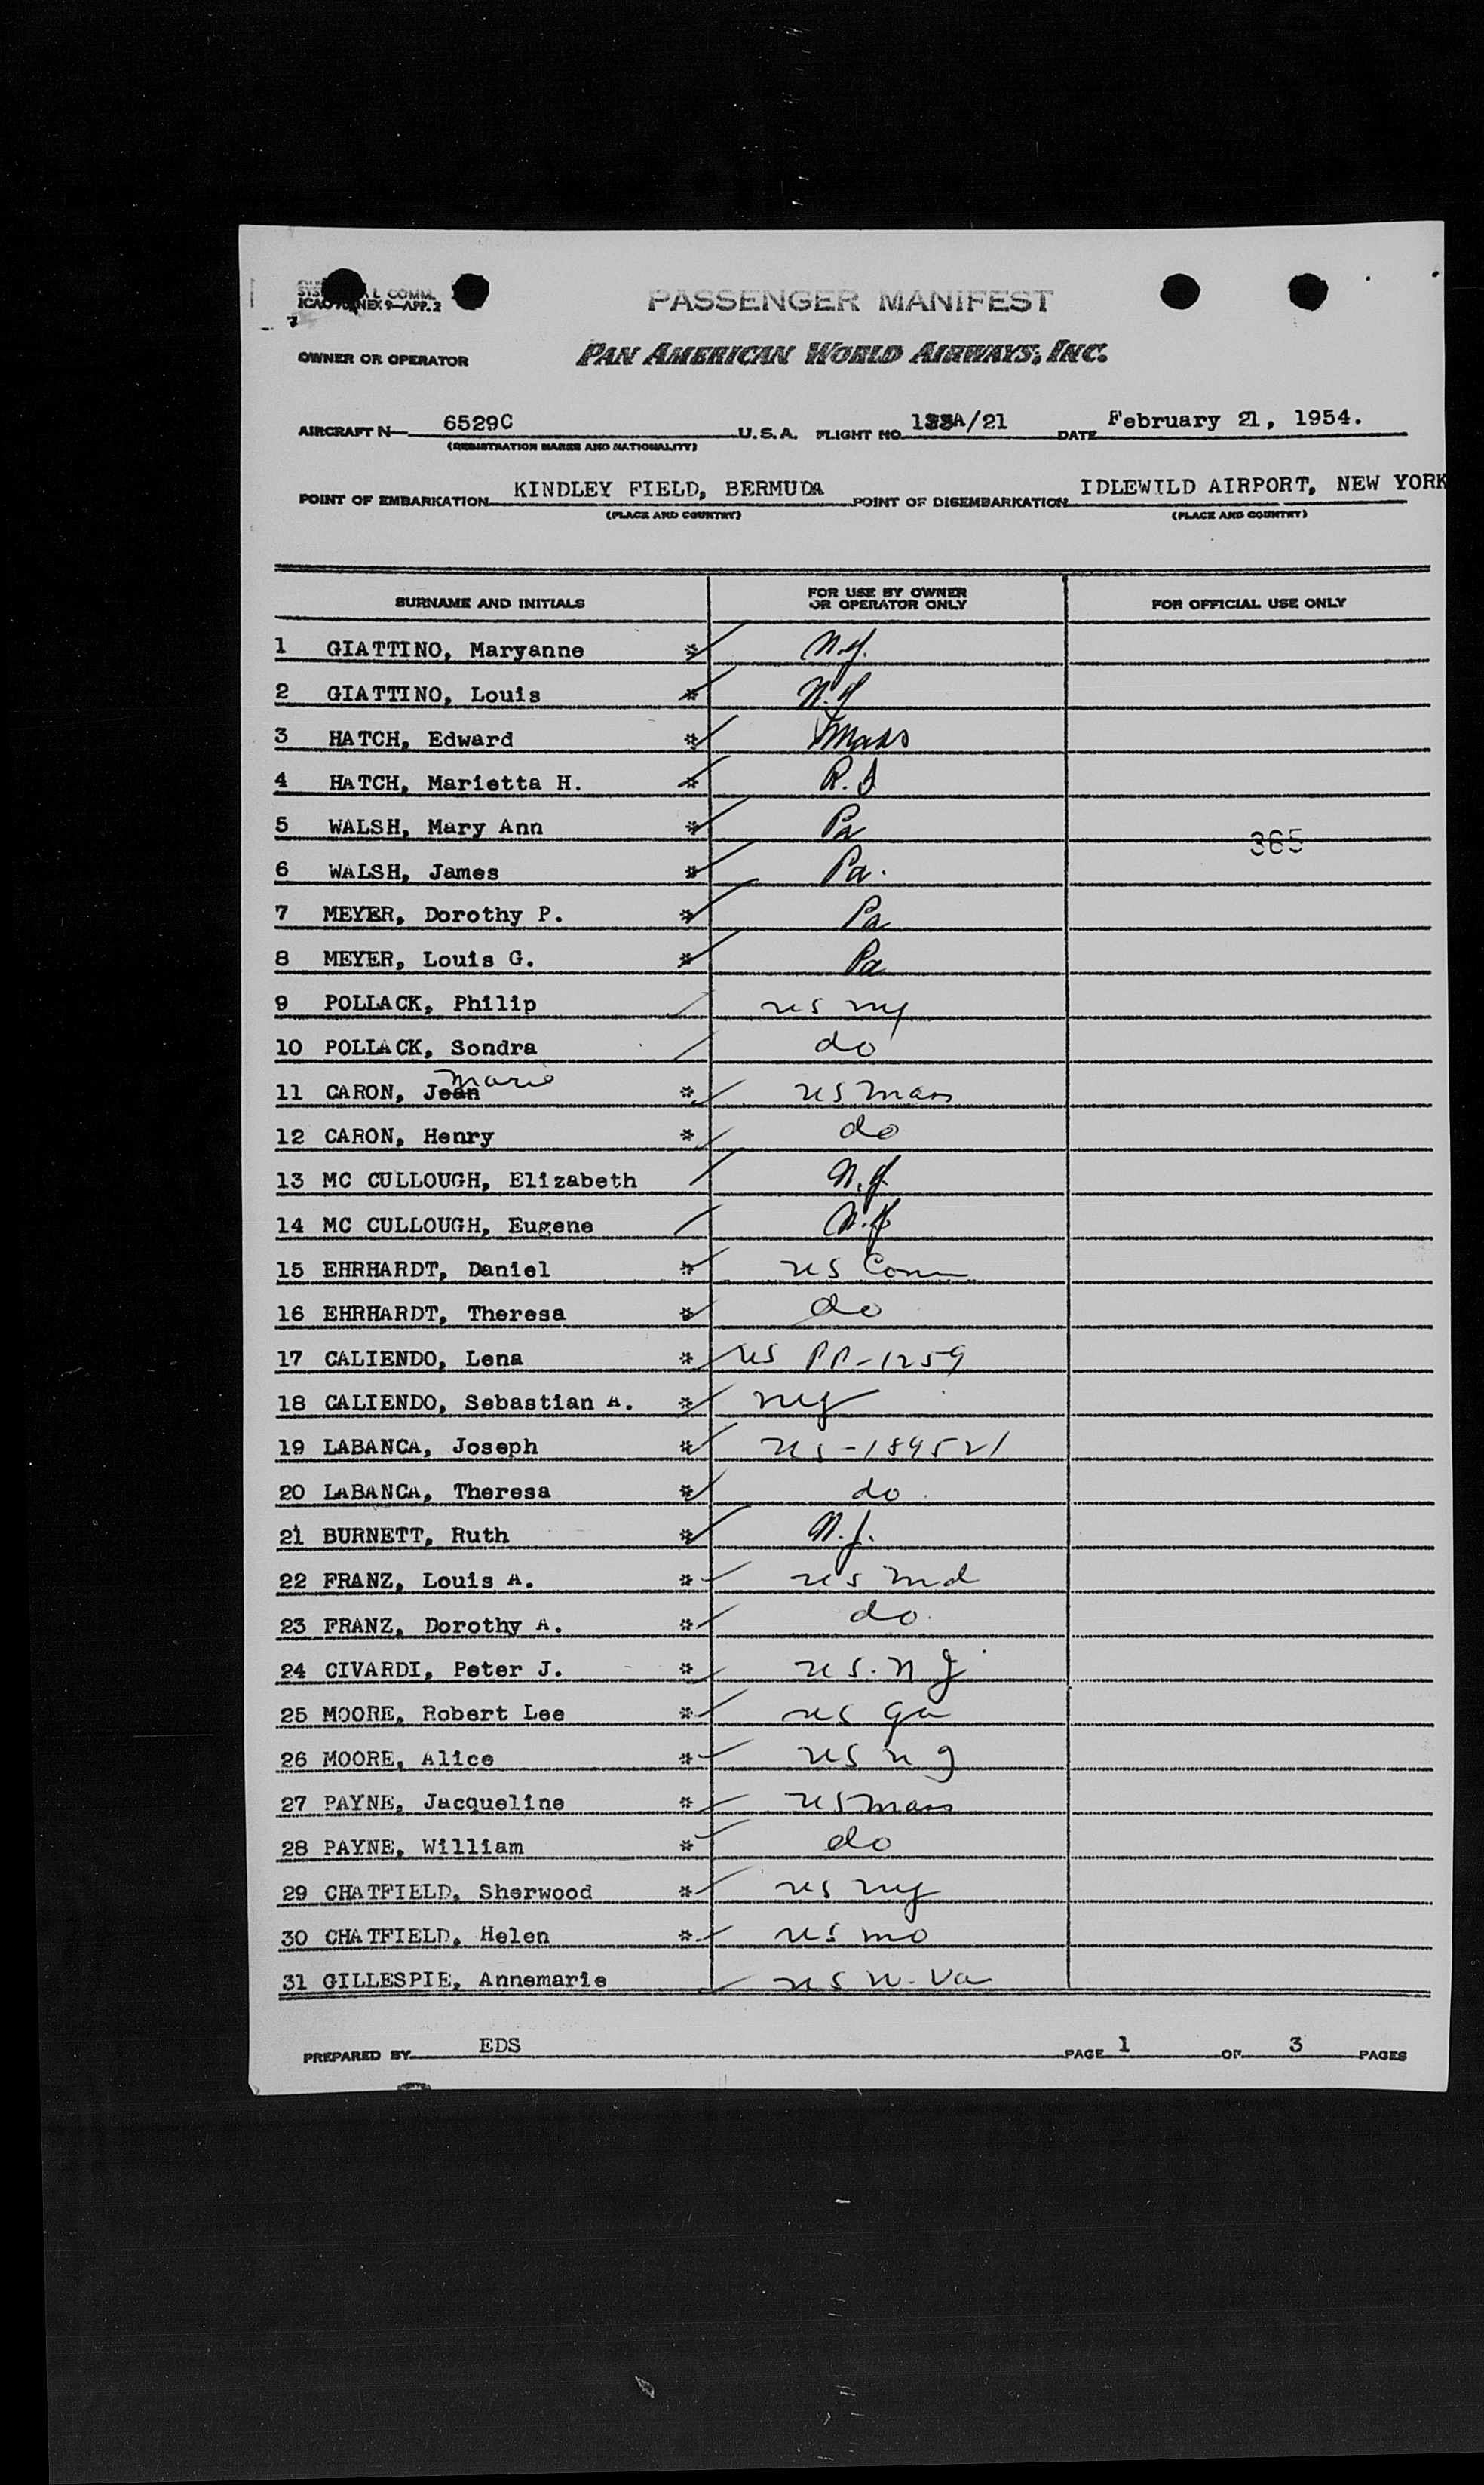 PASSENGER MANIFEST
COMM.
ICAO ANNEX 9—APP. 2
OWNER OR OPERATOR PAN AMERICAN WORLD AIRWAYS, INC.
AIRCRAFT N— 6529C U.S.A. FLIGHT NO. DATE February 21, 1954.
(REGISTRATION MARKS AND NATIONALITY)
POINT OF EMBARKATION KINDLEY FIELD, BERMUDA POINT OF DISEMBARKATION IDLEWILD AIRPORT, NEW YORK
(PLACE AND COUNTRY) (PLACE AND COUNTRY)
SURNAME AND INITIALS FOR USE BY OWNER OR OPERATOR ONLY FOR OFFICIAL USE ONLY
1 GIATTINO, Maryanne * N.Y.
2 GIATTINO, Louis * N.Y
3 HATCH, Edward * Mass
4 HATCH, Marietta H. * R.I
5 WALSH, Mary Ann * Pa
365
6 WALSH, James * Pa.
7 MEYER, Dorothy P. * Pa
8 MEYER, Louis G. * Pa
9 POLLACK, Philip us ny
10 POLLACK, Sondra do
11 CARON, Jean Marie * us mass
12 CARON, Henry * do
13 MC CULLOUGH, Elizabeth N.J.
14 MC CULLOUGH, Eugene
15 EHRHARDT, Daniel * us Conn
16 EHRHARDT, Theresa * do
17 CALIENDO, Lena * us PP-1259
18 CALIENDO, Sebastian A. * ny
19 LABANCA, Joseph * us-189521
20 LABANCA, Theresa * do
21 BURNETT, Ruth * N.J.
22 FRANZ, Louis A. * us md
23 FRANZ, Dorothy A. * do
24 CIVARDI, Peter J. * us. n J
25 MOORE, Robert Lee * us ga
26 MOORE, Alice * us n J
27 PAYNE, Jacqueline * us mass
28 PAYNE, William * do
29 CHATFIELD, Sherwood * us ny
30 CHATFIELD, Helen * us mo
31 GILLESPIE, Annemarie us W. Va
PREPARED BY EDS PAGE 1 OF 3 PAGES